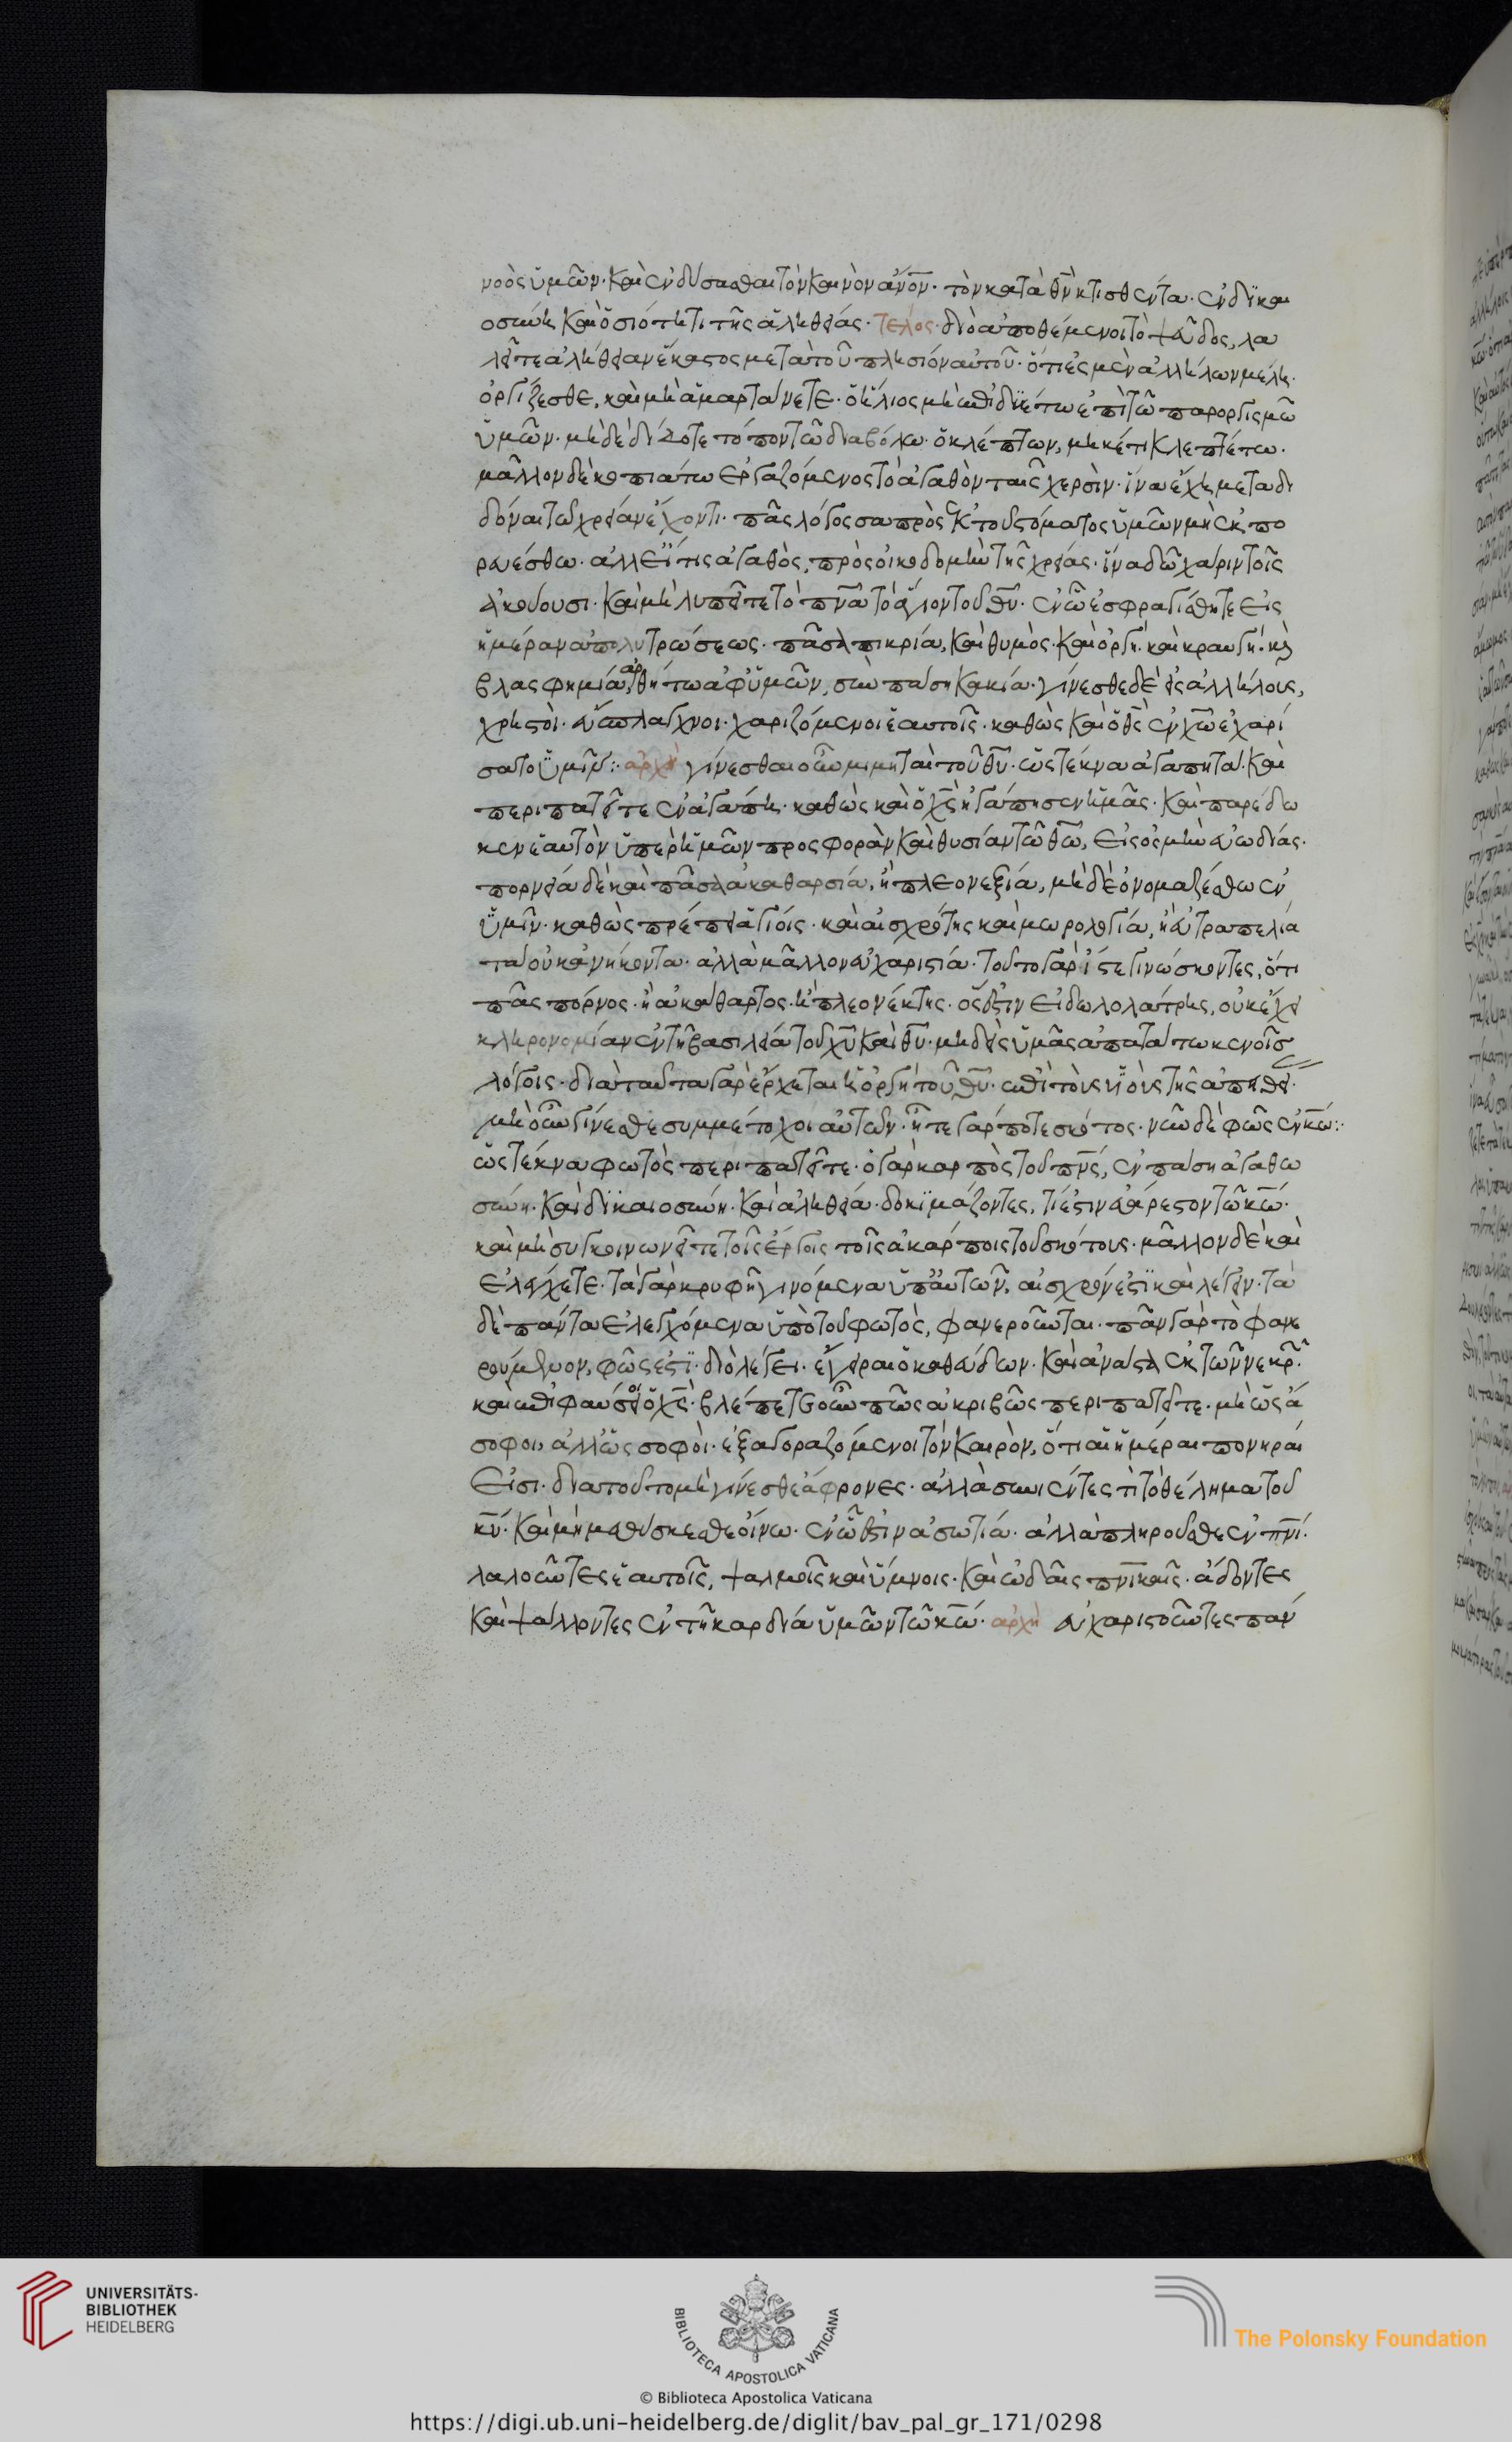 νοὸς ὑμῶν· καὶ ἐνδύσασθαι τὸν καινὸν ἄνον· τὸν κατὰ θν κτισθέντα· ἐν δϊκαι
οσύνη καὶ ὁσιότητι τῆς ἀληθείας· τέλος· διὸ ἀποθέμενοι τὸ ψεῦδος, λα
λεῖτε ἀλήθειαν ἕκαστος μετὰ τοῦ πλησίον αὐτοῦ· ὅτι ἐσμὲν ἀλλήλων μέλη·
ὀργίζεσθε, καὶ μὴ ἁμαρτάνετε· ὁ ἥλιος μὴ ἐπιδϋέτω ἐπὶ τῶ παροργισμῶ
ὑμῶν· μηδὲ δίδοτε τόπον τῶ διαβόλω· ὁ κλέπτων, μηκέτι κλεπτέτω·
μᾶλλον δὲ κοπιάτω ἐργαζόμενος τὸ ἀγαθὸν ταῖς χερσὶν· ἵνα ἔχη μεταδι
δόναι τῶ χρείαν ἔχοντι· πᾶς λόγος σαπρὸς ἐκ τοῦ στόματος ὑμῶν μὴ ἐκπο
ρευέσθω· ἀλλ εἴ τις ἀγαθὸς, πρὸς οἰκοδομὴν τῆς χρείας· ἵνα δῶ χάριν τοῖς
ἀκούουσι· καὶ μὴ λυπεῖτε τὸ πνα τὸ ἅγιον τοῦ θυ· ἐν ὧ ἐσφραγίσθητε εἰς
ἡμέραν ἀπολυτρώσεως· πᾶσα πικρία, καὶ θυμὸς· καὶ ὀργὴ· καὶ κραυγὴ· κὶ
βλασφημία, ἀρθήτω ἀφ ὑμῶν, σὺν πάση κακία· γίνεσθε δὲ εἰς ἀλλήλους,
χρηστοὶ· εὔσπλαγχνοι· χαριζόμενοι ἑαυτοῖς· καθὼς καὶ ὁ θς ἐν χω ἐχαρί
σατο ὑμῖν:· ἀρχὴ γίνεσθαι οὖν μιμηταὶ τοῦ θυ· ὡς τέκνα ἀγαπητά· καὶ
περιπατεῖτε ἐν ἀγάπη· καθὼς καὶ ὁ χς ἠγάπησεν ἡμᾶς· καὶ παρέδω
κεν ἑαυτὸν ὑπὲρ ἡμῶν προσφορὰν καὶ θυσίαν τῶ θω, εἰς ὀσμὴν εὐωδίας·
πορνεία δὲ καὶ πᾶσα ἀκαθαρσία, ἢ πλεονεξία, μηδὲ ὀνομαζέσθω ἐν
ὑμῖν· καθὼς πρέπει ἁγίοις· καὶ αἰσχρότης καὶ μωρολογία, ἢ εὐτραπελία
τὰ οὐκ ἀνήκοντα· ἀλλὰ μᾶλλον εὐχαριστία· τοῦτο γὰρ ἴστε γινώσκοντες, ὅτι
πᾶς πόρνος· ἢ ἀκάθαρτος· ἢ πλεονέκτης· ὅς ἐστιν εἰδωλολάτρης, οὐκ ἔχει
κληρονομίαν ἐν τῆ βασιλεία τοῦ χυ καὶ θυ· μηδεὶς ὑμᾶς ἀπατάτω κενοῖς
λόγοις· διὰ ταῦτα γὰρ ἔρχεται ἡ ὀργὴ τοῦ θυ· ἐπὶ τοὺς υἱοὺς τῆς ἀπειθεί·
μὴ οὖν γίνεσθε συμμέτοχοι αὐτῶν· ἦτε γάρ ποτε σκότος· νῦν δὲ φῶς ἐν κω:·
ὡς τέκνα φωτὸς περιπατεῖτε· ὁ γὰρ καρπὸς τοῦ πνς, ἐν πάση ἀγαθω
σύνη· καὶ δϊκαιοσύνη· καὶ ἀληθεία· δοκϊμάζοντες, τί ἐστιν εὐάρεστον τῶ κω·
καὶ μὴ συγκοινωνεῖτε τοῖς ἔργοις τοῖς ἀκάρποις τοῦ σκότους· μᾶλλον δὲ καὶ
ἐλέγχετε· τὰ γὰρ κρυφῆ γινόμενα ὑπ αὐτῶν, αἰσχρόν ἐστϊ καὶ λέγειν· τὰ
δὲ πάντα ἐλεγχόμενα ὑπὸ τοῦ φωτὸς, φανεροῦνται· πᾶν γὰρ τὸ φανε
ρούμενον, φῶς ἐστϊ· διὸ λέγει· ἔγειραι ὁ καθεύδων· καὶ ἀνάστα ἐκ τῶν νεκρ·
καὶ ἐπιφαύσει σοι ὁ χς· βλέπετε οὖν πῶς ἀκριβῶς περιπατεῖτε· μὴ ὡς ἄ
σοφοι, ἀλλ ὡς σοφοὶ· ἐξαγοραζόμενοι τὸν καιρὸν, ὅτι αἱ ἡμέραι πονηραί
εἰσι· διατοῦτο μὴ γίνεσθε ἄφρονες· ἀλλὰ συνιέντες τὶ τὸ θέλημα τοῦ
κυ· καὶ μὴ μεθύσκεσθε οἴνω· ἐν ὧ ἐστιν ἀσωτία· ἀλλὰ πληροῦσθε ἐν πνι·
λαλοῦντες ἑαυτοῖς, ψαλμοῖς καὶ ὕμνοις· καὶ ὠδαῖς πνικαῖς· ἄδοντες
καὶ ψάλλοντες ἐν τῆ καρδία ὑμῶν τῶ κω· ἀρχὴ εὐχαριστοῦντες πάν
UNIVERSITÄTS-
BIBLIOTHEK
HEIDELBERG
BIBLIOTECA APOSTOLICA VATICANA
© Biblioteca Apostolica Vaticana
The Polonsky Foundation
https://digi.ub.uni-heidelberg.de/diglit/bav_pal_gr_171/0298